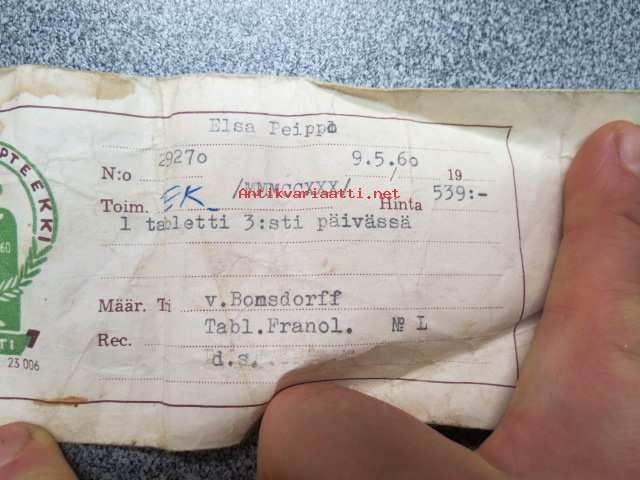 Elsa Peippo
N:o 29270 9.5.60 19
Toim. EK /MMMCCXXX/ Hinta 539:-
1 tabletti 3:sti päivässä
Määr. Tri v.Bomsdorff
Rec. Tabl.Franol. № L
d.s.
PTEEKKI
60
TI
7
23 006
Antikvariaatti.net